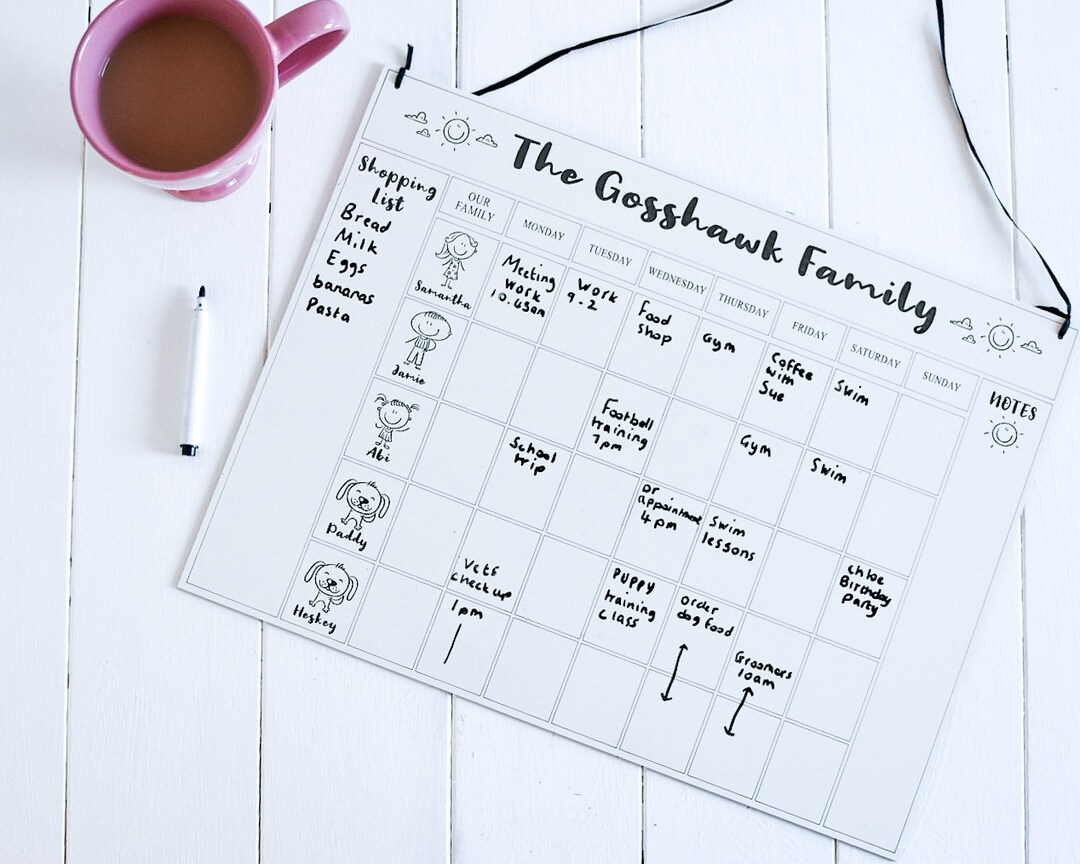 The Gosshawk Family
Shopping
List
Bread
Milk
Eggs
bananas
Pasta
OUR
FAMILY
MONDAY
TUESDAY
WEDNESDAY
THURSDAY
FRIDAY
SATURDAY
SUNDAY
NOTES
Samantha
Meeting
Work
10.45am
Work
9-2
Food
Shop
Gym
Coffee
with
Sue
Swim
Jamie
Football
training
7pm
Gym
Swim
Abi
School
trip
Dr
appointment
4pm
Swim
lessons
Chloe
Birthday
Party
Paddy
Vets
check up
1pm
Puppy
training
class
Order
dog food
Groomers
10am
Heskey